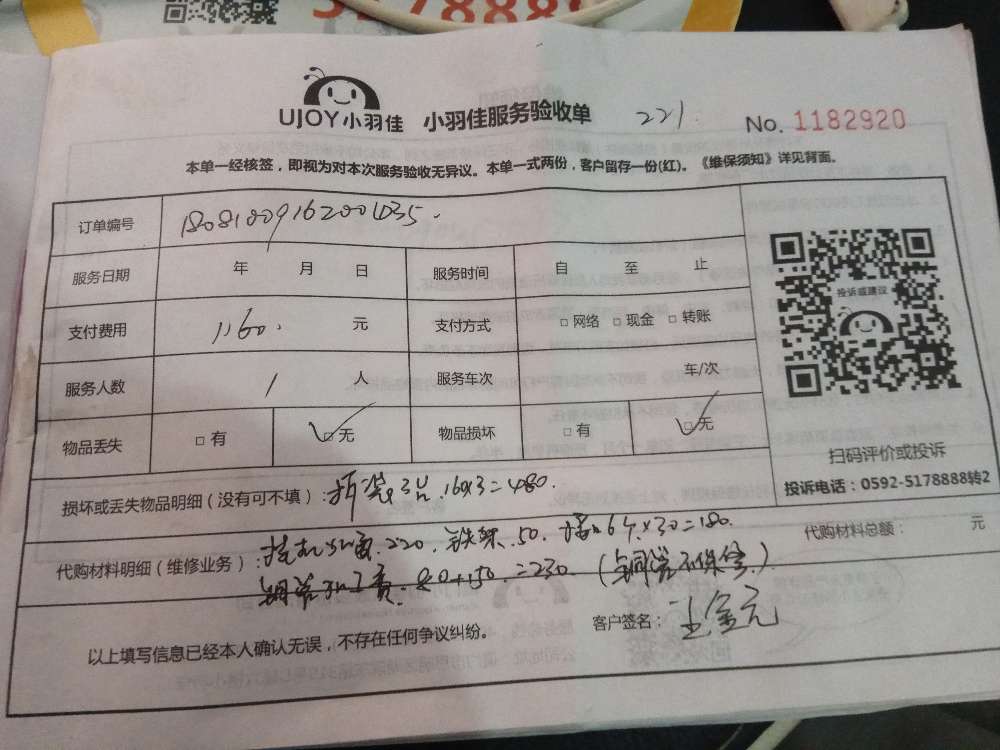 5178888
UJOY小羽佳 小羽佳服务验收单 221 No. 1182920
本单一经核签，即视为对本次服务验收无异议。本单一式两份，客户留存一份(红)。《维保须知》详见背面。
订单编号 18081009162001035.
服务日期 年 月 日 服务时间 自 至 止
支付费用 1160. 元 支付方式 □网络 □现金 □转账
投诉或建议
服务人数 1 人 服务车次 车/次
物品丢失 □有 ☑无 物品损坏 □有 ☑无
扫码评价或投诉
投诉电话：0592-5178888转2
损坏或丢失物品明细（没有可不填）：拆装3台.160×3=480.
代购材料明细（维修业务）：220.铁架.50. 6个×30=180. 代购材料总额： 元
铜管 80+150.=230.（铜管不保修）
以上填写信息已经本人确认无误，不存在任何争议纠纷。 客户签名：王金元